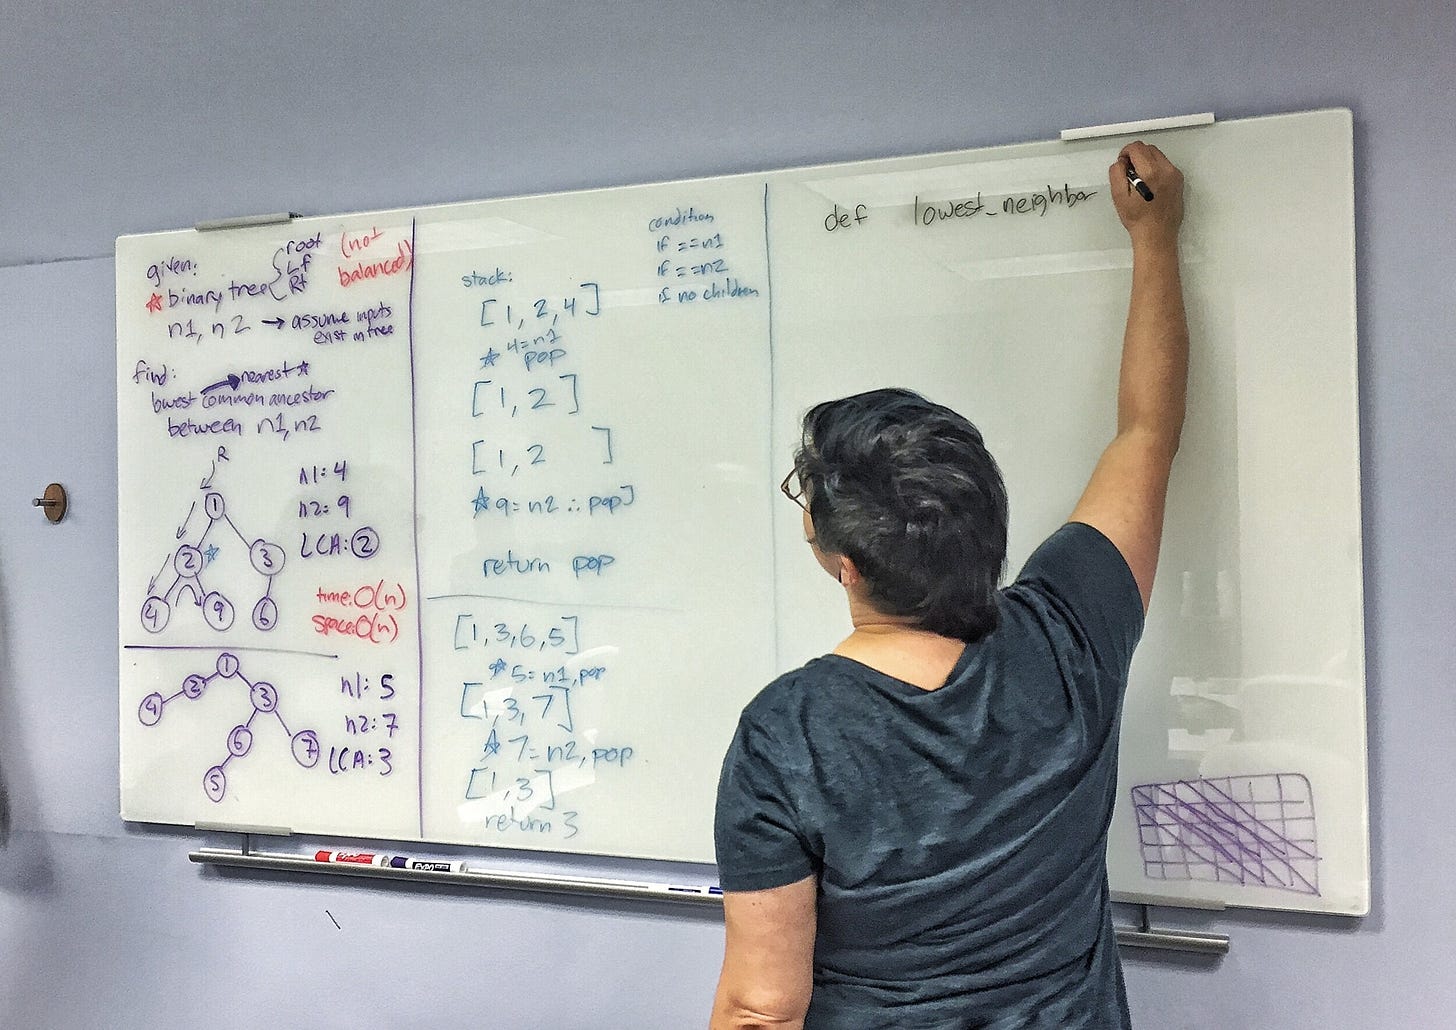 given:
☆ binary tree
root
Lf
Rt
(not
balanced)
n1, n2 → assume inputs
exist in tree
find:
nearest ☆
lowest common ancestor
between n1, n2
R
1
2 ☆
3
4
9
6
n1: 4
n2: 9
LCA: 2
time: O(n)
space: O(n)
1
2
4
3
6
7
5
n1: 5
n2: 7
LCA: 3
stack:
[1, 2, 4]
4=n1
☆ pop
[1, 2]
[1, 2 ]
☆ 9=n2 ∴ pop]
return pop
[1,3,6,5]
☆ 5=n1, pop
[1,3,7]
☆ 7=n2, pop
[1,3]
return 3
condition
if ==n1
if ==n2
if no children
def lowest_neighbor